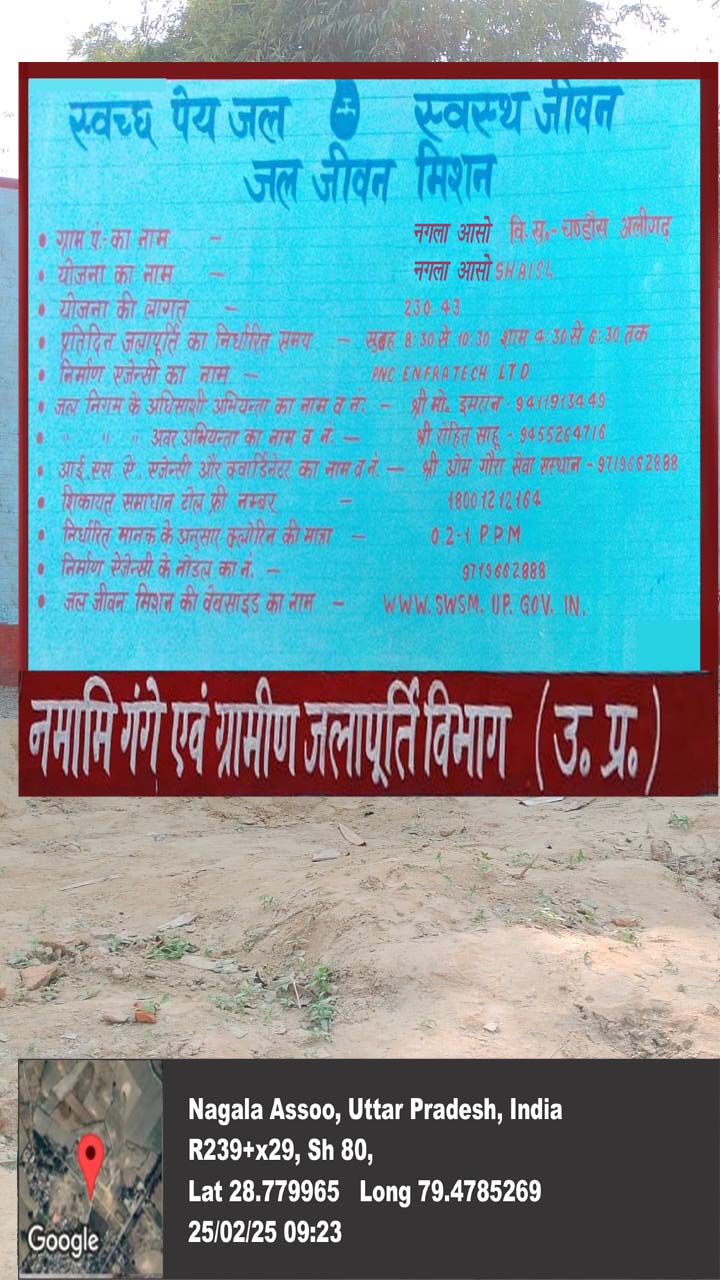 स्वच्छ पेय जल स्वस्थ जीवन
जल जीवन मिशन
• ग्राम पं.-का नाम - नगला आसो वि.ख.-चण्डौस अलीगढ़
• योजना का नाम - नगला आसो SHAISL
• योजना की लागत - 230.43
• प्रतिदिन जलापूर्ति का निर्धारित समय - सुबह 8:30 से 10:30 शाम 4:30 से 6:30 तक
• निर्माण एजेन्सी का नाम - PNC ENFRATECH LTD
• जल निगम के अधिसाशी अभियन्ता का नाम व नं: - श्री मो० इमरान - 9411913449
" " " अवर अभियन्ता का नाम व नं. - श्री रोहित साहू - 9455264716
• आई.एस.ए. एजेन्सी और क्वार्डिनेटर का नाम व नं. - श्री ओम गौरा सेवा संस्थान - 9719662888
• शिकायत समाधान टोल फ्री नम्बर - 18001212164
• निर्धारित मानक के अनुसार क्लोरिन की मात्रा - 0.2-1 PPM
• निर्माण ऐजेन्सी के नोडल का नं. - 9719662888
• जल जीवन मिशन की वेबसाइड का नाम - WWW.SWSM.UP.GOV.IN.
नमामि गंगे एवं ग्रामीण जलापूर्ति विभाग (उ. प्र.)
Nagala Assoo, Uttar Pradesh, India
R239+x29, Sh 80,
Lat 28.779965 Long 79.4785269
25/02/25 09:23
Google